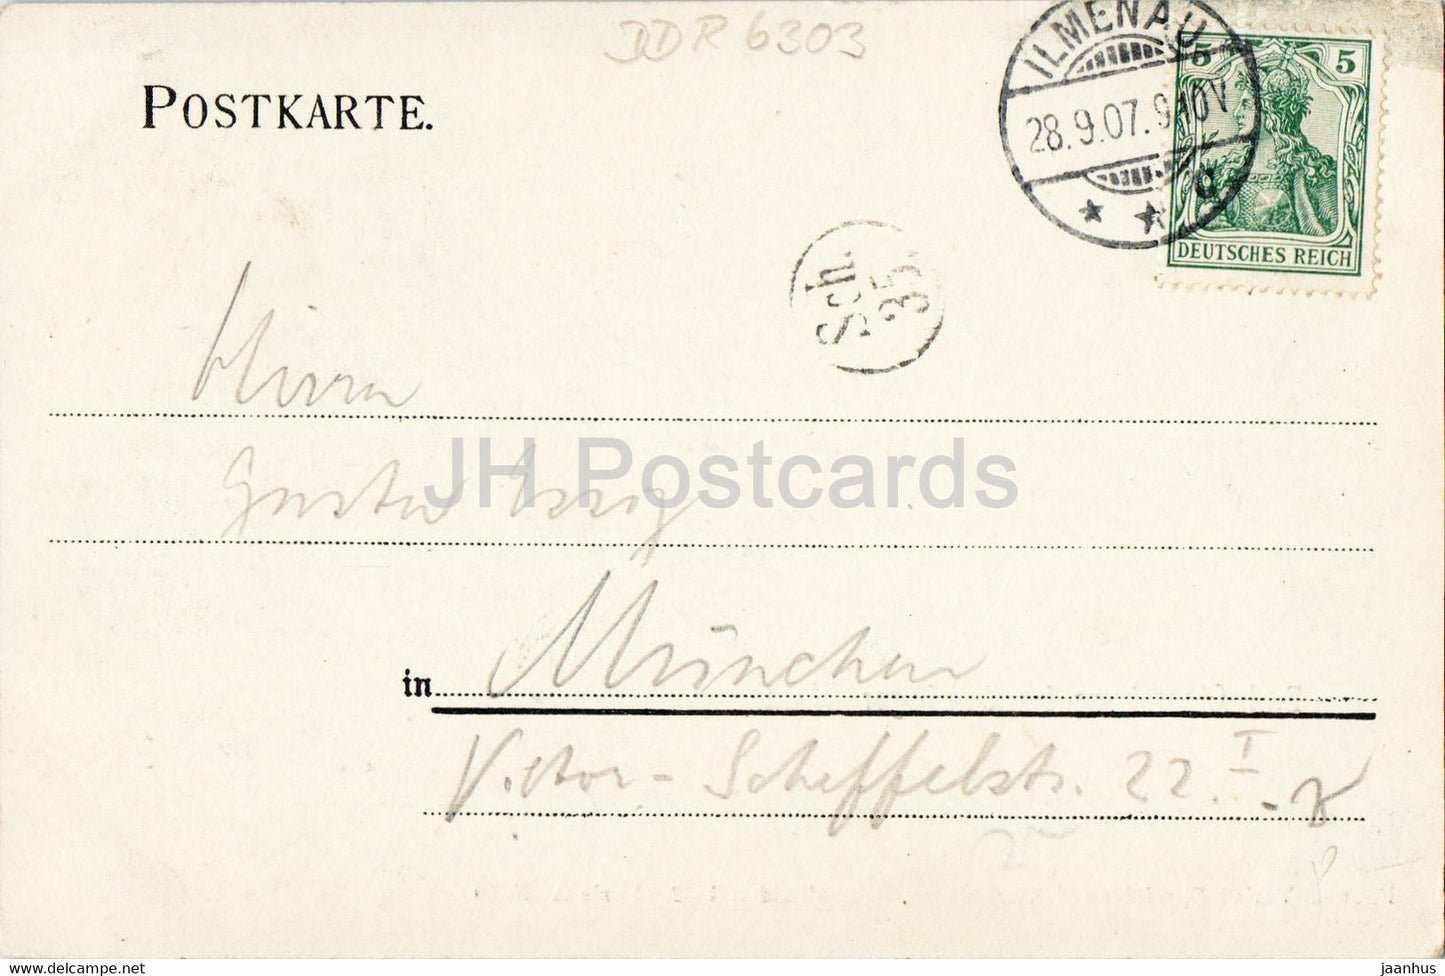 DDR 6303
POSTKARTE.
ILMENAU
28.9.07. 9-10V
5 5
DEUTSCHES REICH
Sch.
35.
Herrn
JH Postcards
Gustav Essig
in München
Victor-Scheffelstr. 22. I
www.delcampe.net
jaanhus